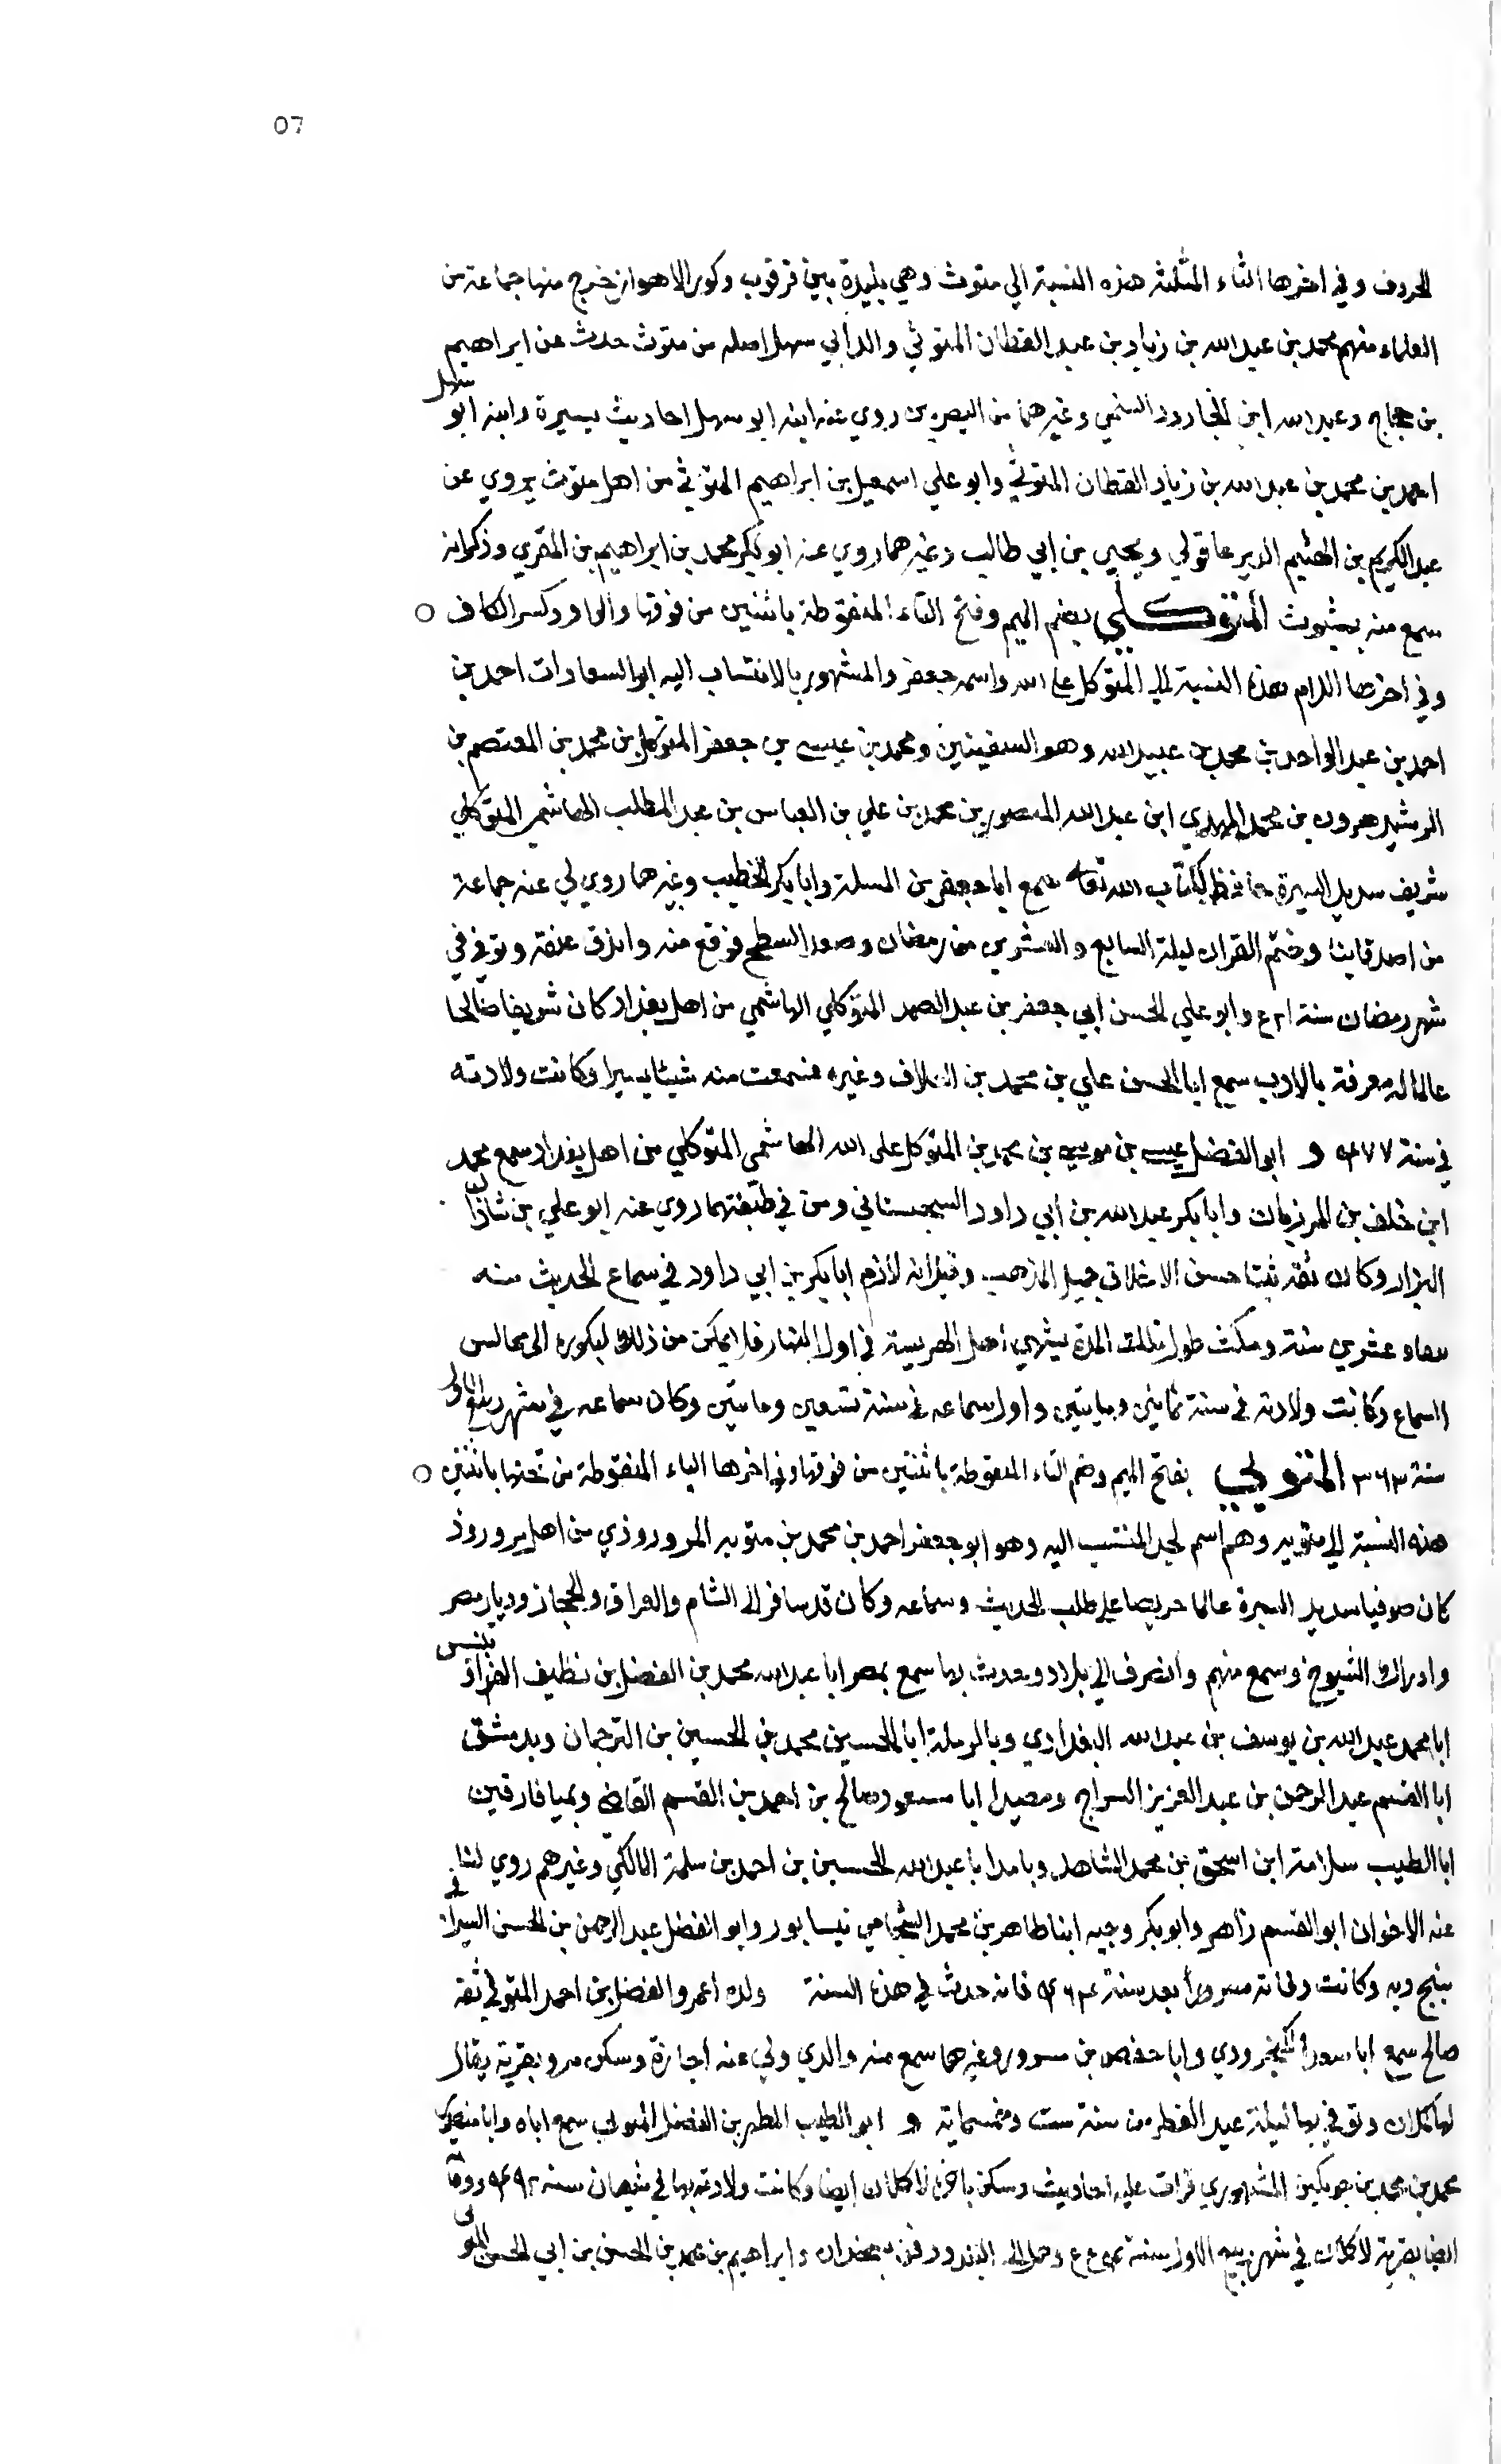 07
الحروف وفي اخرها الثاء المثلثه هذه النسبة الي متوث وهي بليدة بين قرقوب وكور الاهواز خرج منها جماعة من
العلماء منهم محمد بن عبد الله بن زياد بن عبد القطان المتوثي والد ابي سهل اصله من متوث حدث عن ابراهيم
بن حجاج وعبد الله ابن الجارود السلمي وغيرهما من البصريين روي عنه ابنه ابو سهل احاديث يسيرة وابنه ابو سهل
احمد بن محمد بن عبد الله بن زياد القطان المتوثي وابو علي اسمعيل بن ابراهيم المتوثي من اهل متوث يروي عن
عبد الكريم بن الهثيم الديرعاقولي ويحيي بن ابي طالب وغيرهما روي عنه ابو بكر محمد بن ابراهيم بن المقري وذكر انه
سمع منه بمتوث المتوكلي بضم الميم وفتح التاء المنقوطة باثنين من فوقها والواو وكسر الكاف
وفي اخرها اللام هذه النسبة الي المتوكل علي الله واسمه جعفر والمشهور بالانتساب اليه ابو السعادات احمد بن
احمد بن عبد الواحد بن محمد بن عبيد الله وهو السفينين ومحمد بن عيسى بن جعفر المتوكل بن محمد بن المعتصم بن
الرشيد هرون بن محمد المهدي ابن عبد الله المنصور بن محمد بن علي بن العباس بن عبد المطلب الهاشمي المتوكلي
شريف سديد السيرة حافظ لكتاب الله تعالى سمع ابا جعفر بن المسلمة وابا بكر الخطيب وغيرهما روي لي عنه جماعة
من اصدقاينا وختم القران ليلة السابع والعشرين من رمضان وصعد السطح فوقع منه واندق عنقه وتوفي في
شهر رمضان سنة ا٢ع وابو علي الحسن ابي جعفر بن عبد الصمد المتوكلي الهاشمي من اهل بغداد كان شريفا صالحا
عالما له معرفة بالادب سمع ابا الحسن علي بن محمد بن العلاف وغيره فسمعت منه شيئا يسيرا وكانت ولادته
في سنة ٤٧٧ و ابو الفضل عيسى بن موسى بن محمد بن المتوكل على الله الهاشمي المتوكلي من اهل بغداد سمع محمد
ابن خلف بن المرزبان وابا بكر عبد الله بن ابي داود السجستاني ومن في طبقتهما روي عنه ابو علي بن شاذان
البزار وكان ثقة ثبتا حسن الاخلاق جميل المذهب وقيل انه لازم ابا بكر بن ابي داود في سماع الحديث منه
عشرين سنة ومكث طول تلك المدة يشتهي اكل الهريسة في اول النهار فلا يمكن من ذلك لبكوره الى مجالس
السماع وكانت ولادته في سنة ثمانين وماتين واول سماعه في سنة تسعين وماتين وكان سماعه في شهر ربيع الاول
سنة ٣٦٣ المتويي بفتح الميم وضم التاء المنقوطة باثنتين من فوقها وفي اخرها الياء المنقوطة من تحتها باثنتين
هذه النسبة الي متويه وهم اسم لجد المنتسب اليه وهو ابو جعفر احمد بن محمد بن متويه المروروذي من اهل مروروذ
كان صوفيا سديد السيرة عالما حريصا علي طلب الحديث وسماعه وكان قد سافر الى الشام والعراق والحجاز وديار مصر
وادراك الشيوخ وسمع منهم وانصرف الي بلاده وحدث بها سمع بمصر ابا عبد الله محمد بن الفضل بن نظيف الفراء بتنيس
ابا محمد عبد الله بن يوسف بن عبد الله البغدادي وبالرملة ابا الحسين محمد بن الحسين بن الترجمان وبدمشق
ابا القسم عبد الرحمن بن عبد العزيز السراج وبصيدا ابا مسعود صالح بن احمد بن القسم القاضي وبميافارقين
ابا الطيب سلامة ابن اسحق بن محمد الشاهد وبامد ابا عبد الله الحسين بن احمد بن سلمة المالكي وغيرهم روي لنا
عنه الاخوان ابو القسم زاهر وابو بكر وجيه ابنا طاهر بن محمد الشحامي نيسابور وابو الفضل عبد الرحمن بن الحسن السيرافي
بنبج ديه وكانت وفاته بعد سنة ٤٦٣ فانه حدث في هذه السنة ولده اعمرو الفضل بن احمد المتويي ثقة
صالح سمع ابا سعد الكنجرودي وابا حفص بن مسرور وغيرهما سمع منه والدي ولي عنه اجازة وسكن مرو بقرية يقال
لها وتوفي بها ليلة عيد الفطر من سنة ست وخمسماية و ابو الطيب المطهر بن الفضل المتويي سمع اباه وابا منصور
محمد بن محمد بن قرات عليه احاديث وسكن لاكلان ايضا وكانت ولادته بها في شعبان سنة ٤٩٢
ايضا بقرية لاكلان في شهر ربيع الاول سنة وحمل الى ودفن وابراهيم بن محمد بن الحسن بن ابي الحسن المتويي